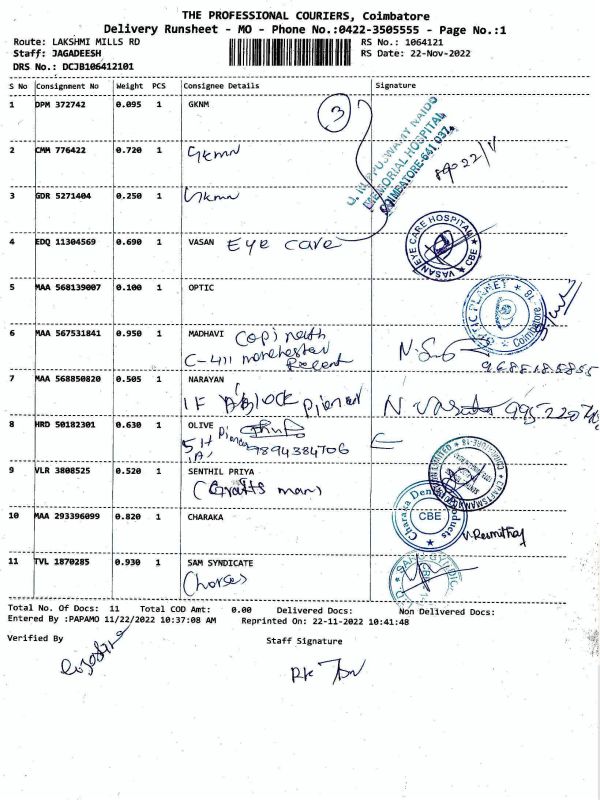 THE PROFESSIONAL COURIERS, Coimbatore
Delivery Runsheet - MO - Phone No.:0422-3505555 - Page No.:1
Route: LAKSHMI MILLS RD RS No.: 1064121
Staff: JAGADEESH RS Date: 22-Nov-2022
DRS No.: DCJB106412101
S No Consignment No Weight PCS Consignee Details Signature
1 DPM 372742 0.095 1 GKNM
3
MEMORIAL HOSPITAL
COIMBATORE-641 037.
2 CMM 776422 0.720 1 Gkmn
3 GDR 5271404 0.250 1 Gkmn
4 EDQ 11304569 0.690 1 VASAN Eye care
VASAN EYE CARE HOSPITAL CBE
5 MAA 568139007 0.100 1 OPTIC
Coimbatore
6 MAA 567531841 0.950 1 MADHAVI Gopinath
C-411 manchester
Regent
7 MAA 568850820 0.505 1 NARAYAN
8 HRD 50182301 0.630 1 OLIVE
9894384706
9 VLR 3808525 0.520 1 SENTHIL PRIYA
(Crafts man)
10 MAA 293396099 0.820 1 CHARAKA
CBE
11 TVL 1870285 0.930 1 SAM SYNDICATE
Total No. Of Docs: 11 Total COD Amt: 0.00 Delivered Docs: Non Delivered Docs:
Entered By :PAPAMO 11/22/2022 10:37:08 AM Reprinted On: 22-11-2022 10:41:48
Verified By Staff Signature